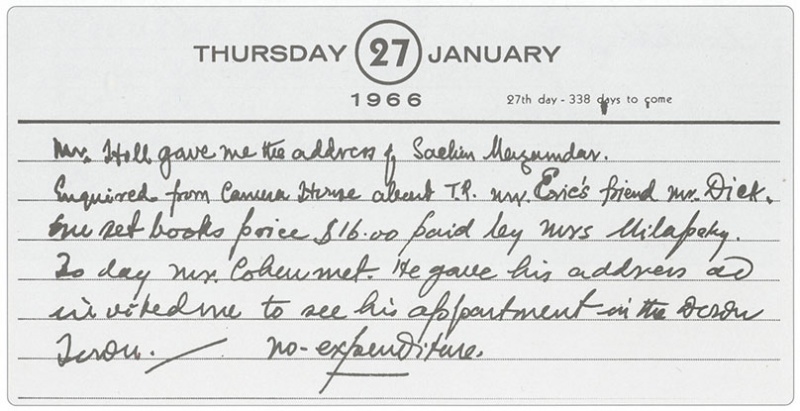 THURSDAY 27 JANUARY
1966
27th day - 338 days to come
Mr. Hill gave me the address of Sachin Mazumdar.
Enquired from Camera House about T.R. mr. Eric's friend mr. Dick.
One set books price $16.00 paid by Mrs
To day mr. Cohen met. He gave his address ad
invited me to see his appartment in the Down
Town. no-expenditure.